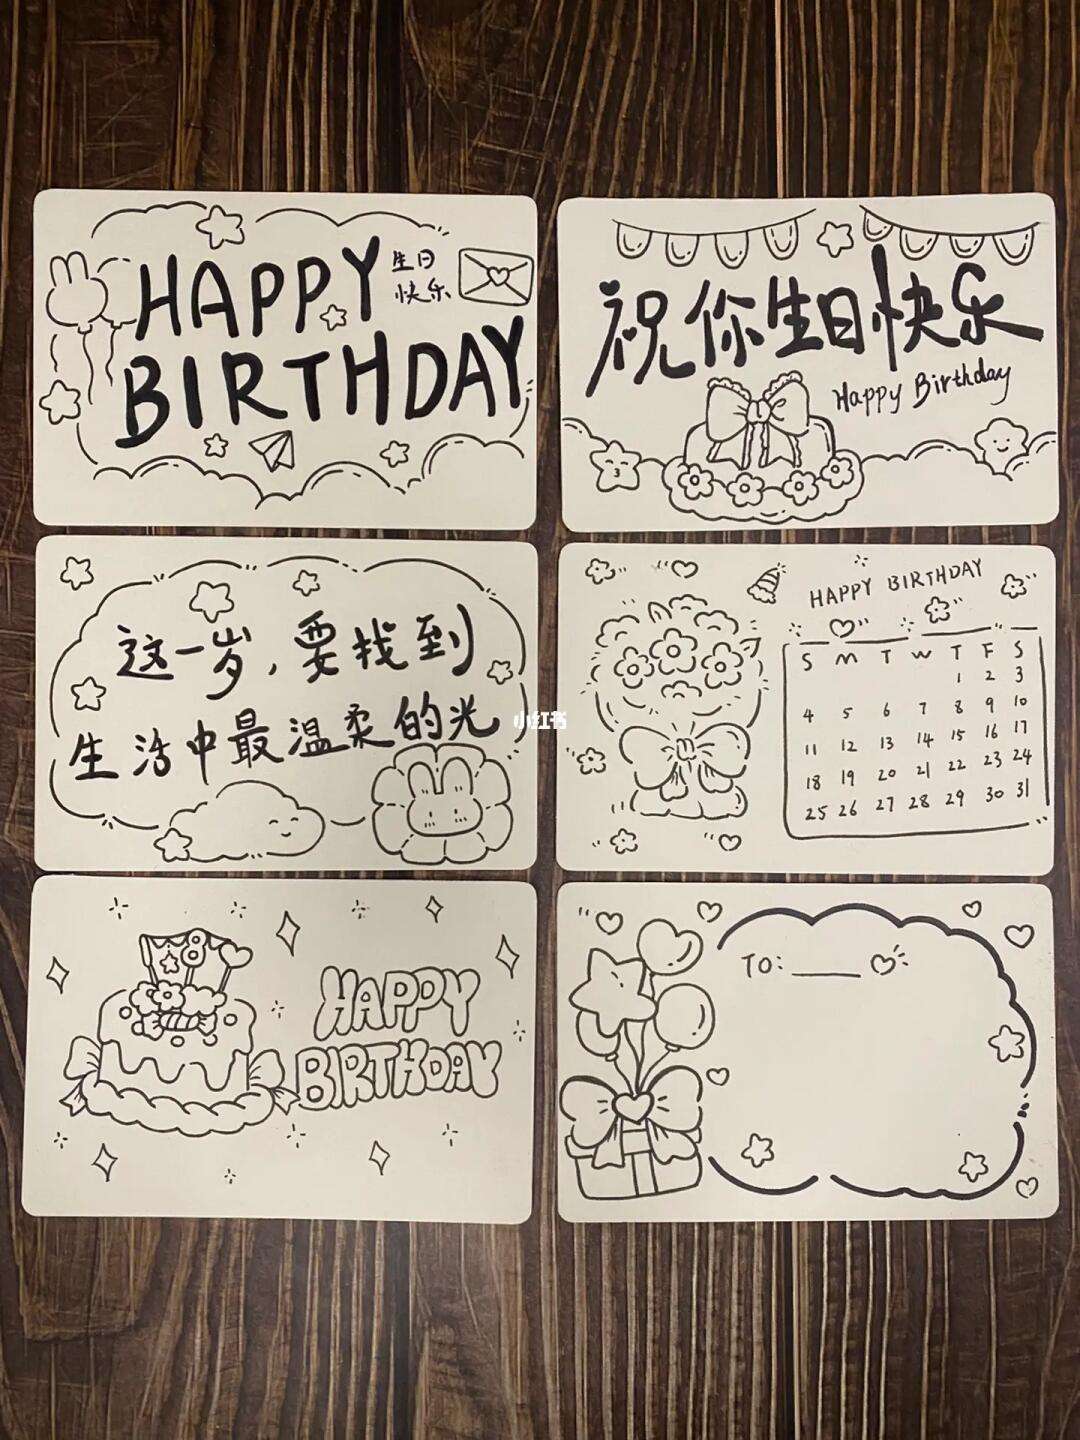 HAPPY
生日
快乐
BIRTHDAY
祝你生日快乐
Happy Birthday
这一岁，要找到
生活中最温柔的光
小红书
HAPPY BIRTHDAY
S M T W T F S
1 2 3
4 5 6 7 8 9 10
11 12 13 14 15 16 17
18 19 20 21 22 23 24
25 26 27 28 29 30 31
8
HAPPY
BIRTHDAY
TO: